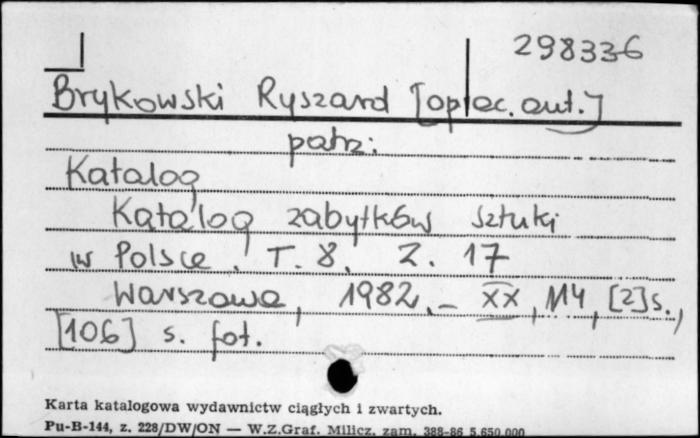 298336
Brykowski Ryszard [oprac. aut.]
patrz:
Katalog
Katalog zabytków sztuki
w Polsce. T. 8, Z. 17
Warszawa, 1982. – XX, 114, [2] s.,
[106] s. fot.
Karta katalogowa wydawnictw ciągłych i zwartych.
Pu-B-144, z. 228/DW/ON — W.Z.Graf. Milicz, zam. 388-86 5.650.000